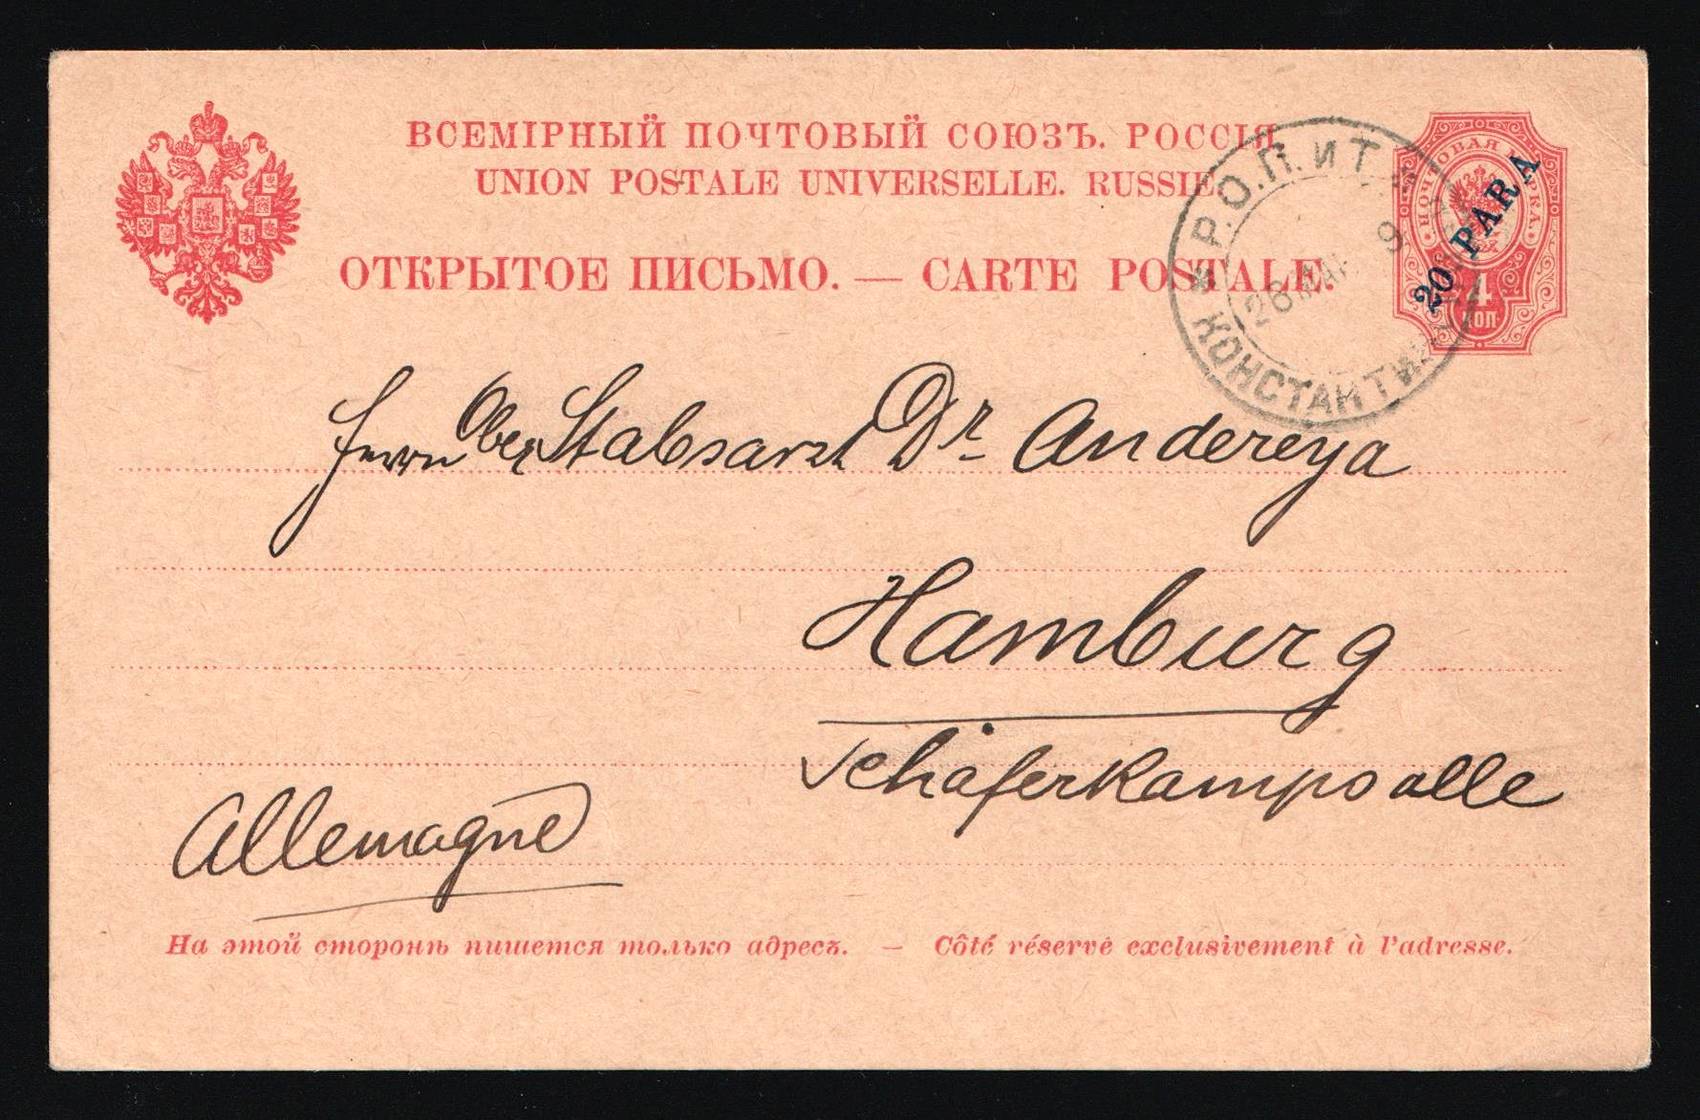 ВСЕМІРНЫЙ ПОЧТОВЫЙ СОЮЗЪ. РОССІЯ
UNION POSTALE UNIVERSELLE. RUSSIE.
ОТКРЫТОЕ ПИСЬМО. — CARTE POSTALE.
Р.О.П.иТ.
28 МАР 9
КОНСТАНТИН
ПОЧТОВАЯ МАРКА.
20 PARA
4
КОП.
Herrn Ober Stabsarzt Dr Andereya
Hamburg
Schäferkampsalle
Allemagne
На этой сторонѣ пишется только адресъ. — Côté réservé exclusivement à l'adresse.